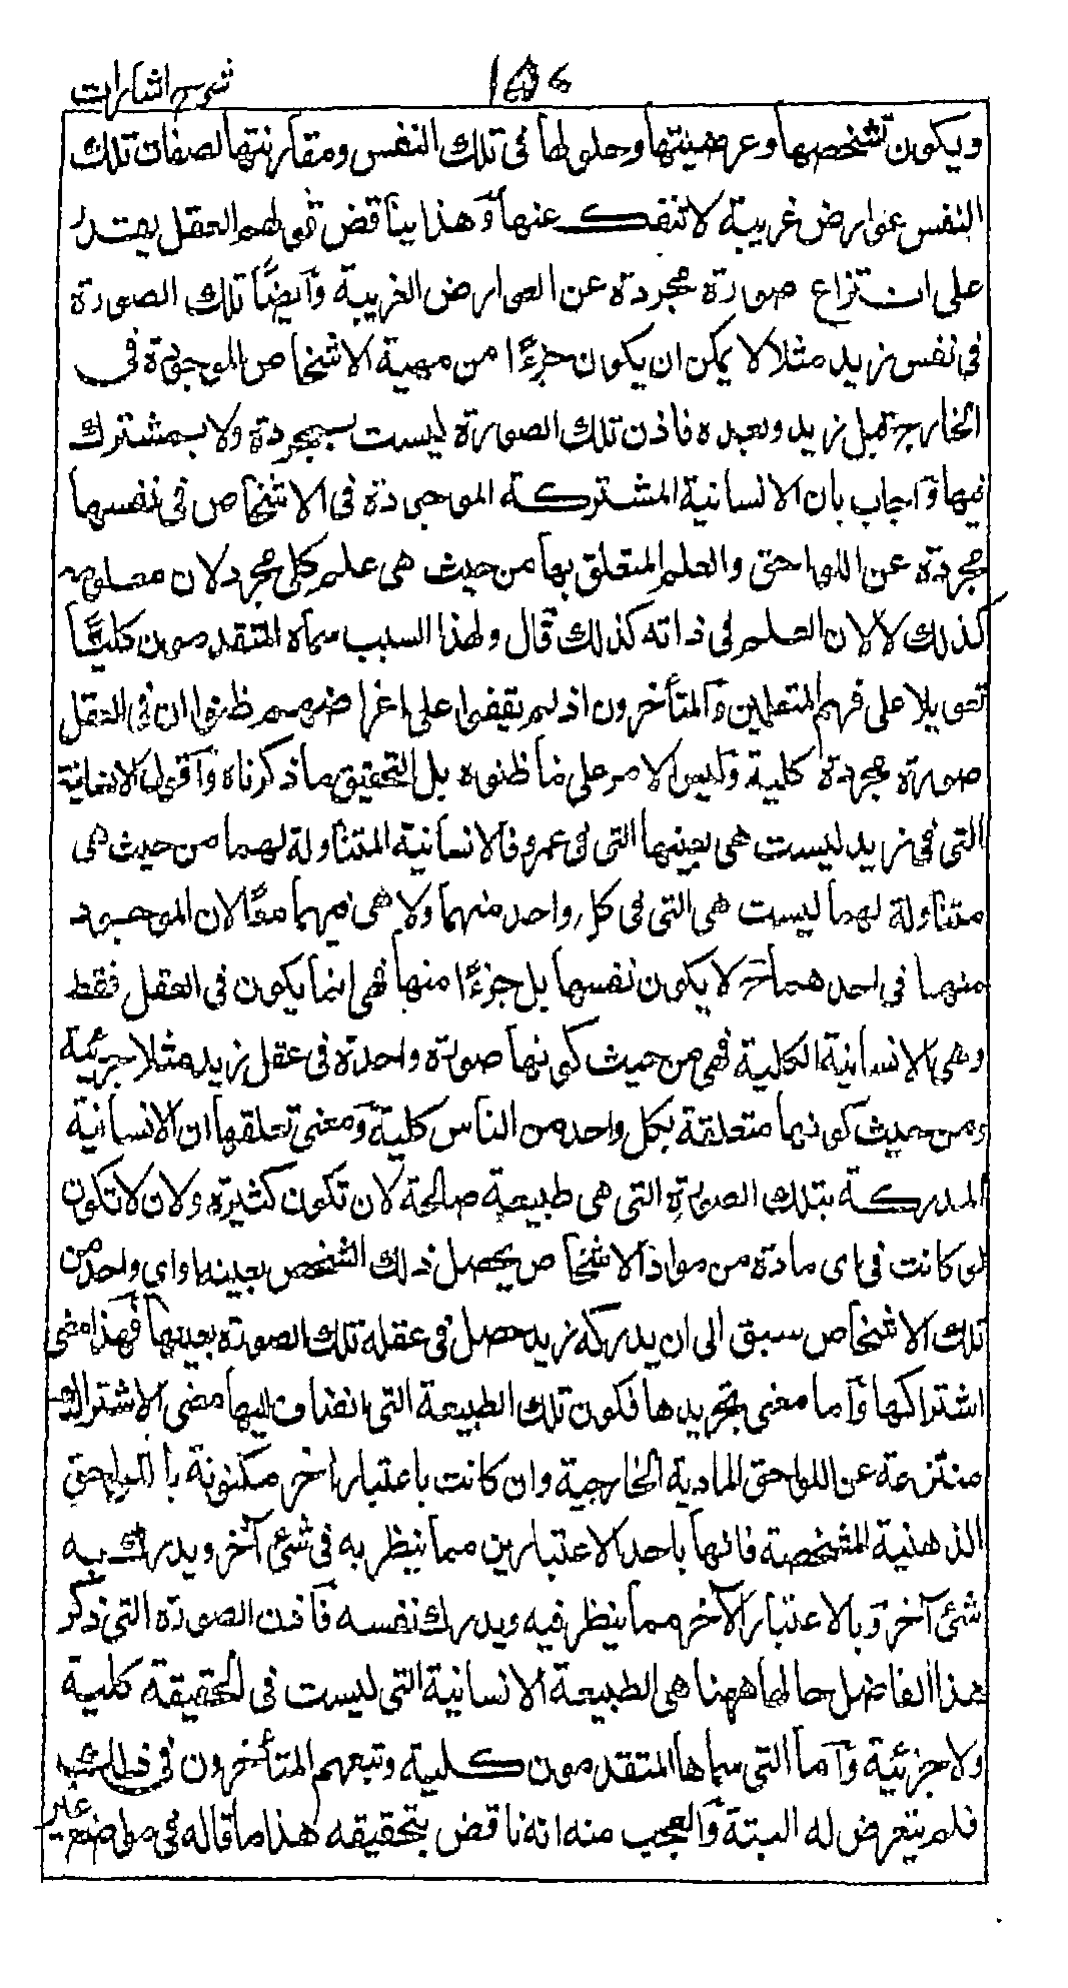 شرح اشارات
ويكون تشخصها وعرضيتها وحلولها فى تلك النفس ومقارنتها لصفات تلك
النفس عوارض غريبة لا تنفك عنها وهذا يناقض قولهم العقل يقتدر
على انتزاع صورة مجردة عن العوارض الغريبة وأيضًا تلك الصورة
فى نفس زيد مثلا لا يمكن ان يكون جزءًا من مهية الاشخاص الموجودة فى
الخارج قبل زيد وبعده فاذن تلك الصورة ليست بمجردة ولا بمشترك
فيها وأجاب بان الانسانية المشتركة الموجودة فى الاشخاص فى نفسها
مجردة عن اللواحق والعلم المتعلق بها من حيث هى علم كلى مجرد لان معلومه
كذلك لا لان العلم فى ذاته كذلك قال ولهذا السبب سماه المتقدمون كليًّا
تعويلا على فهم المتعلمين والمتأخرون اذ لم يقفوا على اغراضهم ظنوا ان فى العقل
صورة مجردة كلية وليس الامر على ما ظنوه بل التحقيق ما ذكرناه وأقول الانسانية
التى فى زيد ليست هى بعينها التى فى عمرو فالانسانية المتناولة لهما من حيث هى
متناولة لهما ليست هى التى فى كل واحد منهما ولا هى فيهما معًا لان الموجود
منها فى احدهما ح لا يكون نفسها بل جزءًا منها فهى انما يكون فى العقل فقط
وهى الانسانية الكلية فهى من حيث كونها صورة واحدة فى عقل زيد مثلا جزئية
ومن حيث كونها متعلقة بكل واحد من الناس كلية ومعنى تعلقها ان الانسانية
المدركة بتلك الصورة التى هى طبيعة صالحة لان تكون كثيرة ولان لا تكون
لو كانت فى اى مادة من مواد الاشخاص يحصل ذلك الشخص بعينه او اى واحد من
تلك الاشخاص سبق الى ان يدركه زيد حصل فى عقله تلك الصورة بعينها فهذا معنى
اشتراكها وأما معنى تجريدها فكون تلك الطبيعة التى انضاف اليها معنى الاشتراك
منتزعة عن اللواحق المادية الخارجية وان كانت باعتبار اخر مكنونة باللواحق
الذهنية المشخصة فانها باحد الاعتبارين مما ينظر به فى شئ آخر ويدرك به
شئ آخر وبالاعتبار الآخر مما ينظر فيه ويدرك نفسه فأذن الصورة التى ذكر
هذا الفاضل حالها ههنا هى الطبيعة الانسانية التى ليست فى الحقيقة كلية
ولا جزئية وأما التى سماها المتقدمون كلية وتبعهم المتأخرون فى ذلك
فلم يتعرض له البتة والعجب منه انه ناقض بتحقيقه هذا ما قاله فى مواضع غير